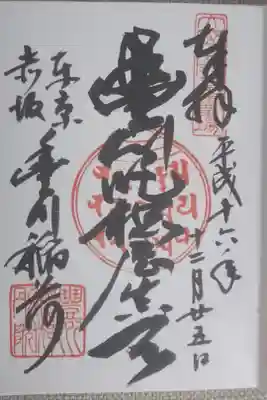 奉拝
平成十六年
十二月廿五日
豊川吒枳尼真天
東京
赤坂
豊川稲荷